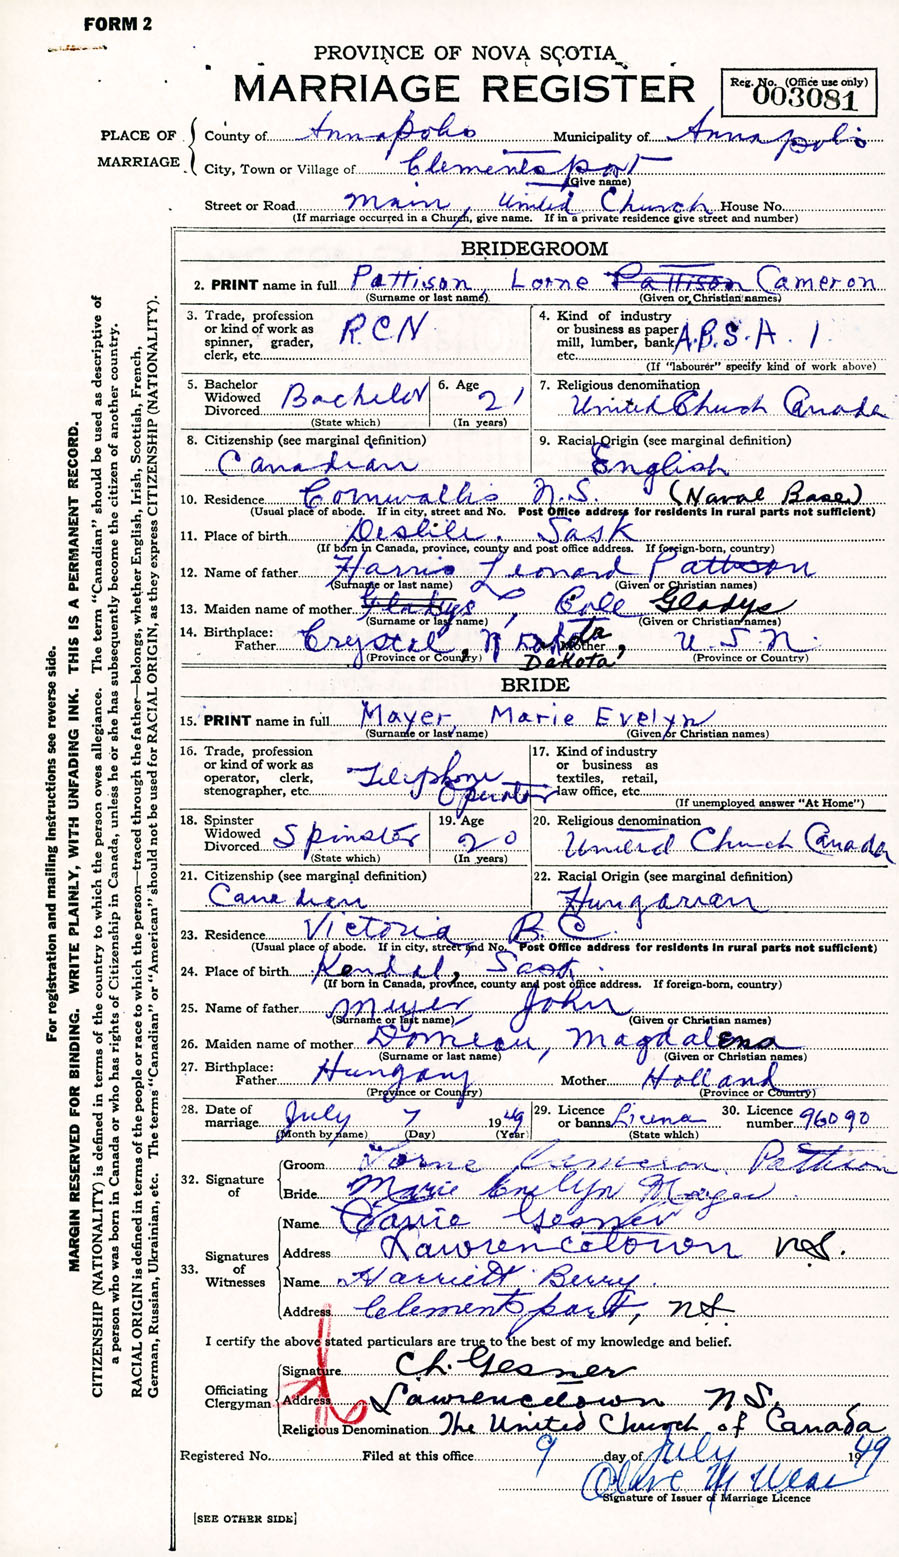 FORM 2
PROVINCE OF NOVA SCOTIA
MARRIAGE REGISTER
Reg. No. (Office use only)
003081
PLACE OF MARRIAGE
County of Annapolis Municipality of Annapolis
City, Town or Village of Clementsport
(Give name)
Street or Road Main, United Church House No.
(If marriage occurred in a Church, give name. If in a private residence give street and number)
BRIDEGROOM
2. PRINT name in full Pattison, Lorne Pattison Cameron
(Surname or last name) (Given or Christian names)
3. Trade, profession or kind of work as spinner, grader, clerk, etc. R.C.N.
4. Kind of industry or business as paper mill, lumber, bank etc. A.B.S.A. 1.
(If "labourer" specify kind of work above)
5. Bachelor Widowed Divorced Bachelor
(State which)
6. Age 21
(In years)
7. Religious denomination United Church Canada
8. Citizenship (see marginal definition) Canadian
9. Racial Origin (see marginal definition) English
10. Residence Cornwallis N.S. (Naval Base)
(Usual place of abode. If in city, street and No. Post Office address for residents in rural parts not sufficient)
11. Place of birth Deslile. Sask
(If born in Canada, province, county and post office address. If foreign-born, country)
12. Name of father Harris Leonard Pattison
(Surname or last name) (Given or Christian names)
13. Maiden name of mother Gladys, Cole Gladys
(Surname or last name) (Given or Christian names)
14. Birthplace: Father Crystal, N Dakota Mother, U.S.N.
Dakota
(Province or Country) (Province or Country)
BRIDE
15. PRINT name in full Mayer, Marie Evelyn
(Surname or last name) (Given or Christian names)
16. Trade, profession or kind of work as operator, clerk, stenographer, etc. Telephone Operator
17. Kind of industry or business as textiles, retail, law office, etc.
(If unemployed answer "At Home")
18. Spinster Widowed Divorced Spinster
(State which)
19. Age 20
(In years)
20. Religious denomination United Church Canada
21. Citizenship (see marginal definition) Canadian
22. Racial Origin (see marginal definition) Hungarian
23. Residence Victoria B.C.
(Usual place of abode. If in city, street and No. Post Office address for residents in rural parts not sufficient)
24. Place of birth Kendal, Sask.
(If born in Canada, province, county and post office address. If foreign-born, country)
25. Name of father Meyer, John
(Surname or last name) (Given or Christian names)
26. Maiden name of mother Magdalena
(Surname or last name) (Given or Christian names)
27. Birthplace: Father Hungary Mother Holland
(Province or Country) (Province or Country)
28. Date of marriage July 7 1949
(Month by name) (Day) (Year)
29. Licence or banns License
(State which)
30. Licence number 96090
32. Signature of
Groom Lorne Cameron Pattison
Bride Marie Evelyn Mayer
33. Signatures of Witnesses
Name Carrie Gesner
Address Lawrencetown N.S.
Name Harriett Berry
Address Clementsport, NS
I certify the above stated particulars are true to the best of my knowledge and belief.
Officiating Clergyman
Signature Ch. Gesner
Address Lawrencetown N.S.
Religious Denomination The United Church of Canada
Registered No. Filed at this office 9 day of July 1949
Olave M
Signature of Issuer of Marriage Licence
[SEE OTHER SIDE]
For registration and mailing instructions see reverse side.
MARGIN RESERVED FOR BINDING. WRITE PLAINLY, WITH UNFADING INK. THIS IS A PERMANENT RECORD.
CITIZENSHIP (NATIONALITY) is defined in terms of the country to which the person owes allegiance. The term "Canadian" should be used as descriptive of
a person who was born in Canada or who has rights of Citizenship in Canada, unless he or she has subsequently become the citizen of another country.
RACIAL ORIGIN is defined in terms of the people or race to which the person—traced through the father—belongs, whether English, Irish, Scottish, French,
German, Russian, Ukrainian, etc. The terms "Canadian" or "American" should not be used for RACIAL ORIGIN, as they express CITIZENSHIP (NATIONALITY).